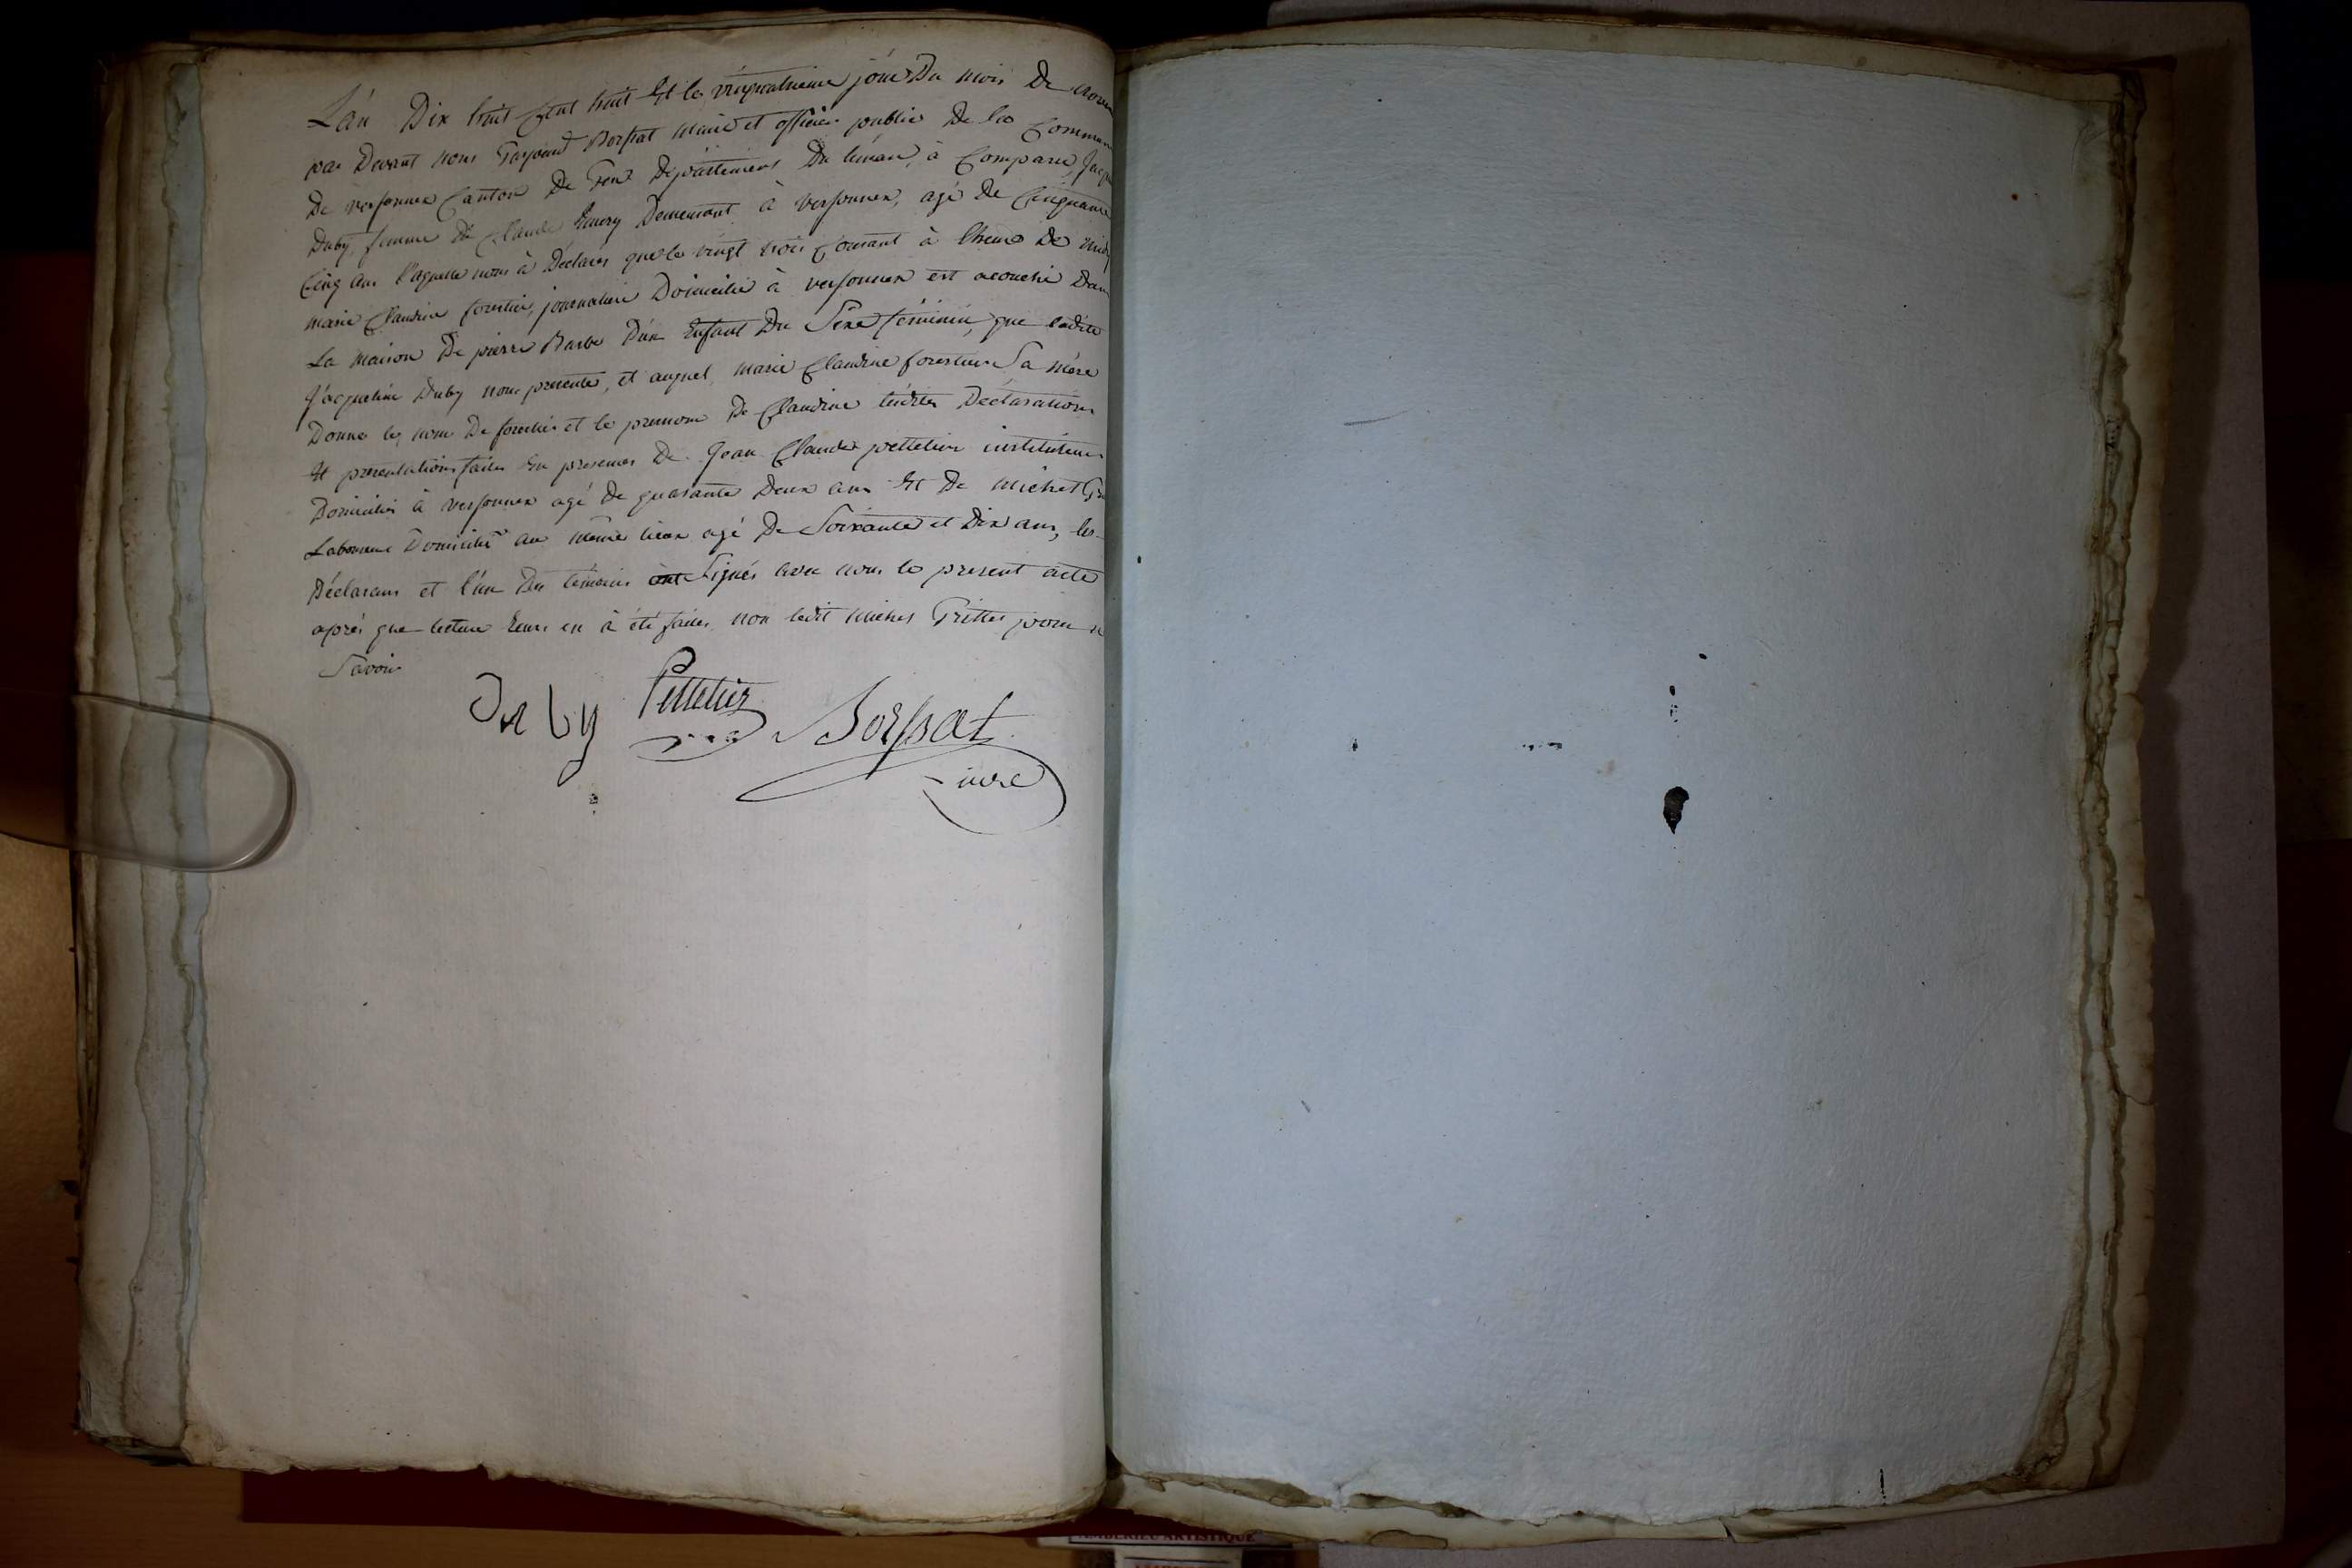 L'án Dix huit Cent huit Et le vingquatrieme jour Du mois De
par Devant nous Borssat Maire et officier public De la Commun
De versonnex Canton De Gex Département Du léman, à Comparu, Jacq
Duby femme De Claude Emery Demeurant à versonnex, agé De Cinquante
Cinq Ans Laquelle nous à Declarés que le vingt trois Courant à lheure De midy
marie Claudine forestier, journaliere Domicilié à versonnex est acouchée Dans
La maison De pierre Barbe D'un Enfant Du Sexe feminin, que ladite
Jacqueline Duby nous presente, et auquel, marie Claudine forestier Sa mére
Donne le nom De et le prenom De Claudine lesdites Déclarations
Et presentations faites En presence De Jean Claude pelletier instituteur
Domicilié à versonnex agé De quarante Deux ans Et De michel
Laboureur Domicilié au même lieux agé De Soixante et Dix ans, les
Déclarans et l'un Du témoins ont Signés avec nous le present acte
aprés que lecture Leurs en à été faites non ledit Michel Grillet pour
Savoir
Duby Pelletier Borssat
mre
AMBERIEU ARTISTIQUE